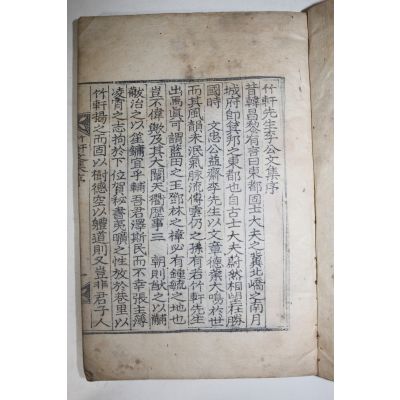 竹軒先生李公文集序
昔韓昌黎有言曰東都固士大夫之冀北嶠之南月
城府即我邦之東都也自古士大夫蔚然相望在勝
國時 文忠公益齋李先生以文章德業大鳴於世
而其風韻未泯氣脉流傳雲仍之孫有若竹軒先生
出焉眞可謂藍田之玉鄧林之樟必有鍾毓之地也
豈不偉歟及其大闡天衢歷事三 朝則猷之以黼
黻治之以笙鏞宜乎輔吾君澤斯民而不幸張主簿
凌霄之志拘於下位賀秘書夷曠之性放於巷里以
竹軒揚之而固以樹德空以軆道則又豈非君子人